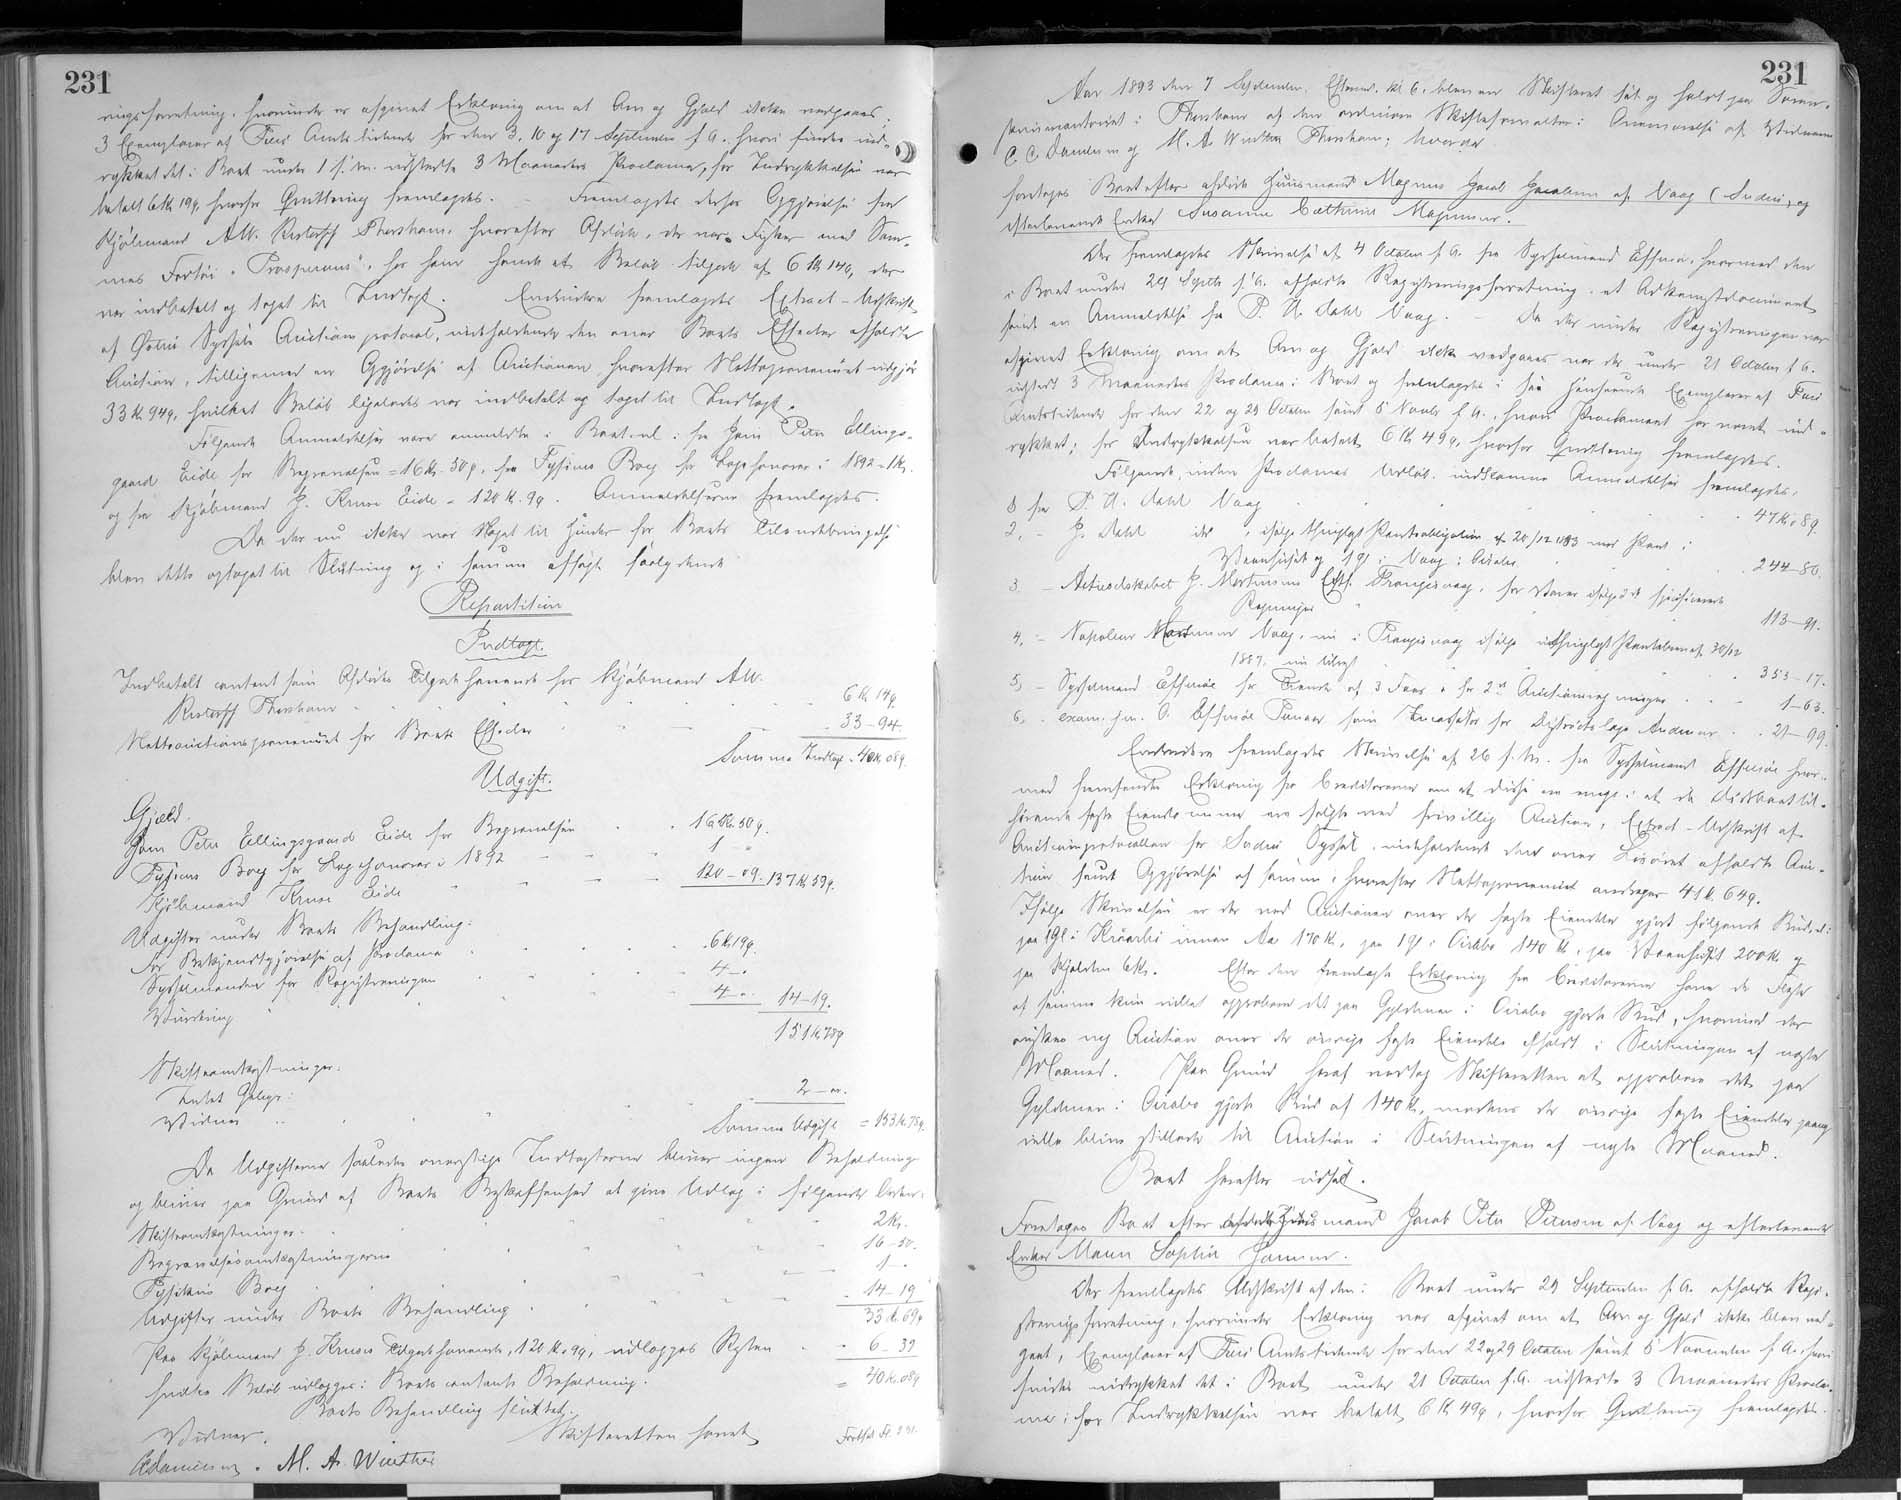 231
ringsforretning, hvorunder er afgivet Erklæring om at Arv og Gjæld ikke vedgaaes;
3 Exemplarer af Færø Amts Tidende for den 3, 10 og 17 September f. A. hvori findes ind-
rykket det i Boet under 1 s. M. udstedte 3 Maaneders Proclama, for Indrykkelsen var
betalt 6 Kr 19 ø, hvorfor Qvittering fremlagdes. Fremlagdes derhos Opgjørelse fra
Kjøbmand Alb. Restorff Thorshavn, hvorefter Afdøde, der var Fisker med Sam-
mes Fartøi "Prosperous", hos ham havde et Beløb tilgode af 6 Kr 14 ø, der
var indbetalt og taget til Indtægt. Endvidere fremlagdes Extract-Udskrift
af Østerø Syssels Auctionsprotocol, indeholdende den over Boets Effecter afholdte
Auction, tilligemed en Opgjørelse af Auctionen, hvorefter Nettoprovenuet udgjør
33 Kr 94 ø, hvilket Beløb ligeledes var indbetalt og taget til Indtægt.
Følgende Anmeldelser vare anmeldte i Boet: fra Joen Peter Ellings-
gaard Eide for Begravelsen = 16 Kr. 50 ø, fra Fysicus Boeg for Lægehonorar i 1892 - 1 Kr.
og fra Kjøbmand J. Kruse Eide - 120 Kr. 9 ø. Anmeldelserne fremlagdes.
Da der nu ikke var Noget til Hinder for Boets Tilendebringelse
blev dette optaget til Slutning og i samme afsagt saalydende
Repartition
Indtægt.
Indbetalt contant som Afdødes Tilgodehavende hos Kjøbmand Alb.
Restorff Thorshavn 6 Kr 14 ø
Nettoauctionsprovenuet for Boets Effecter 33 - 94.
Summa Indtægt - 40 Kr. 08 ø.
Udgift.
Gjæld.
Joen Peter Ellingsgaard Eide for Begravelsen 16 Kr. 50 ø.
Fysicus Boeg for Lægehonorar i 1892 1 "
Kjøbmand Kruse Eide 120 - 09. 137 Kr 59 ø.
Udgifter under Boets Behandling:
For Bekjendtgjørelse af Proclama 6 Kr 19 ø.
Sysselmanden for Registreringen 4 - "
Vurdering 4 - " 14 - 19.
151 Kr 78 ø
Skifteomkostninger:
Intet Gebyr:
Vidner 2 - "
Summa Udgift = 153 Kr. 78 ø.
Da Udgifterne saaledes overstige Indtægterne bliver ingen Beholdning
og bliver paa Grund af Boets Beskaffenhed at give Udlæg i følgende Orden:
Skifteomkostninger 2 Kr.
Begravelsesomkostningerne 16 - 50.
Fysikus Boeg 1 "
Udgifter under Boets Behandling 14 - 19
33 Kr. 69 ø
Paa Kjøbmand J. Kruses Tilgodehavende, 120 Kr. 9 ø, udlægges Resten 6 - 39
hvilke Beløb udlægges i Boets contante Beholdning. = 40 Kr. 08 ø
Boets Behandling sluttet.
Skifteretten hævet
Vidner.
CDanielsen. M. A. Winther
Fortsat fol. 231.
231
Aar 1893 den 7 September, Efterm. kl 6, blev en Skifteret sat og holdt paa Soren-
skriverkontoret i Thorshavn af den ordinære Skifteforvalter i Overværelse af Vidnerne
C. C. Danielsen og M. A. Winther Thorshavn; hvorda
foretoges Boet efter afdøde Huusmand Magnus Jacob Jacobsen af Vaag (Suderø) og
efterlevende Enke Susanne Cathrine Magnussen.
Der fremlagdes Skrivelse af 4 October f. A. fra Sysselmand Effersøe, hvormed den
i Boet under 29 Septb f. A. afholdte Registreringsforretning, et Adkomstdocument
samt en Anmeldelse fra P. H. Dahl Vaag. Da der under Registreringen var
afgivet Erklæring om at Arv og Gjæld ikke vedgaaes var der under 21 October f. A.
udstedt 3 Maaneders Proclama i Boet og fremlagdes i saa Henseende Exemplarer af Færø
Amtstidende for den 22 og 29 October samt 5 Novbr f. A., hvori Proclamaet har været ind-
rykket; for Indrykkelsen var betalt 6 Kr 49 ø, hvorfor Qvittering fremlagdes.
Følgende, inden Proclamas Udløb, indkomne Anmeldelser fremlagdes,
1 fra P. H. Dahl Vaag 47 Kr. 89.
2, - J. Dahl ibd., ifølge thinglyst Pantobligation af 20/12 1883 med Pant i
Vaanhuset og 1 gl i Vaag i Øirabø 244 - 80.
3. - Actieselskabet J. Mortensens Eftf. Trangisvaag, for Varer ifølge specificerede
Regninger 193 - 91.
4. - Napoleon Mortensen Vaag, nu i Trangisvaag ifølge uthinglyst Pantebrev af 30/12
1887, nu tilrest 353 - 17.
5, - Sysselmand Effersøe for Leveret af 3 Faar, for 2n Auctionsregninger 1 - 63.
6, - exam. jur. O. Effersøe Tværaa som Incassator for Districtslæge Andersen 21 - 99.
Endvidere fremlagdes Skrivelse af 26 f. M. fra Sysselmand Effersøe hvor-
med fremsendes Erklæring fra Creditorerne om at disse ere enige i at de Dødsboet til-
hørende faste Eiendomme ere solgte ved frivillig Auction, Extract-Udskrift af
Auctionsprotocollen for Suderø Syssel, indeholdende den over Løsøret afholdte Auc-
tion samt Opgjørelse af samme, hvorefter Nettoprovenuet andrager 41 Kr. 64 ø.
Ifølge Skrivelsen er der ved Auctionen over de faste Eiendele gjort følgende Bud:
paa 1 gl. i innan Aa 170 Kr, paa 1 gl i Øirabø 140 Kr, paa Vaanhuset 200 Kr og
paa Kjælderen 6 Kr. Efter den fremlagte Erklæring fra Creditorerne have de Fleste
af samme kun villet approbere det paa Gyldenen i Øirabø gjorte Bud, hvorimod der
ønskes ny Auction over de øvrige faste Eiendele afholdt i Slutningen af næste
Maaned. Paa Grund heraf vedtog Skifteretten at approbere det paa
Gyldenen i Øirabø gjorte Bud af 140 Kr, medens de øvrige faste Eiendele paany
ville blive stillede til Auction i Slutningen af næste Maaned.
Boet herefter udsat.
Foretoges Boet efter afdøde Huusmand Jacob Peter Petersen af Vaag og efterlevende
Enke Maren Sophie Joensen.
Der fremlagdes Udskrift af den i Boet under 29 September f. A. afholdte Regi-
streringsforretning, hvorunder Erklæring var afgivet om at Arv og Gjæld ikke blev ved-
gaaet, Exemplarer af Færø Amtstidende for den 22 og 29 October samt 5 November f. A., hvori
findes indrykket det i Boet under 21 October f. A. udstedte 3 Maaneders Procla-
ma; for Indrykkelsen var betalt 6 Kr 49 ø, hvorfor Qvittering fremlagdes.